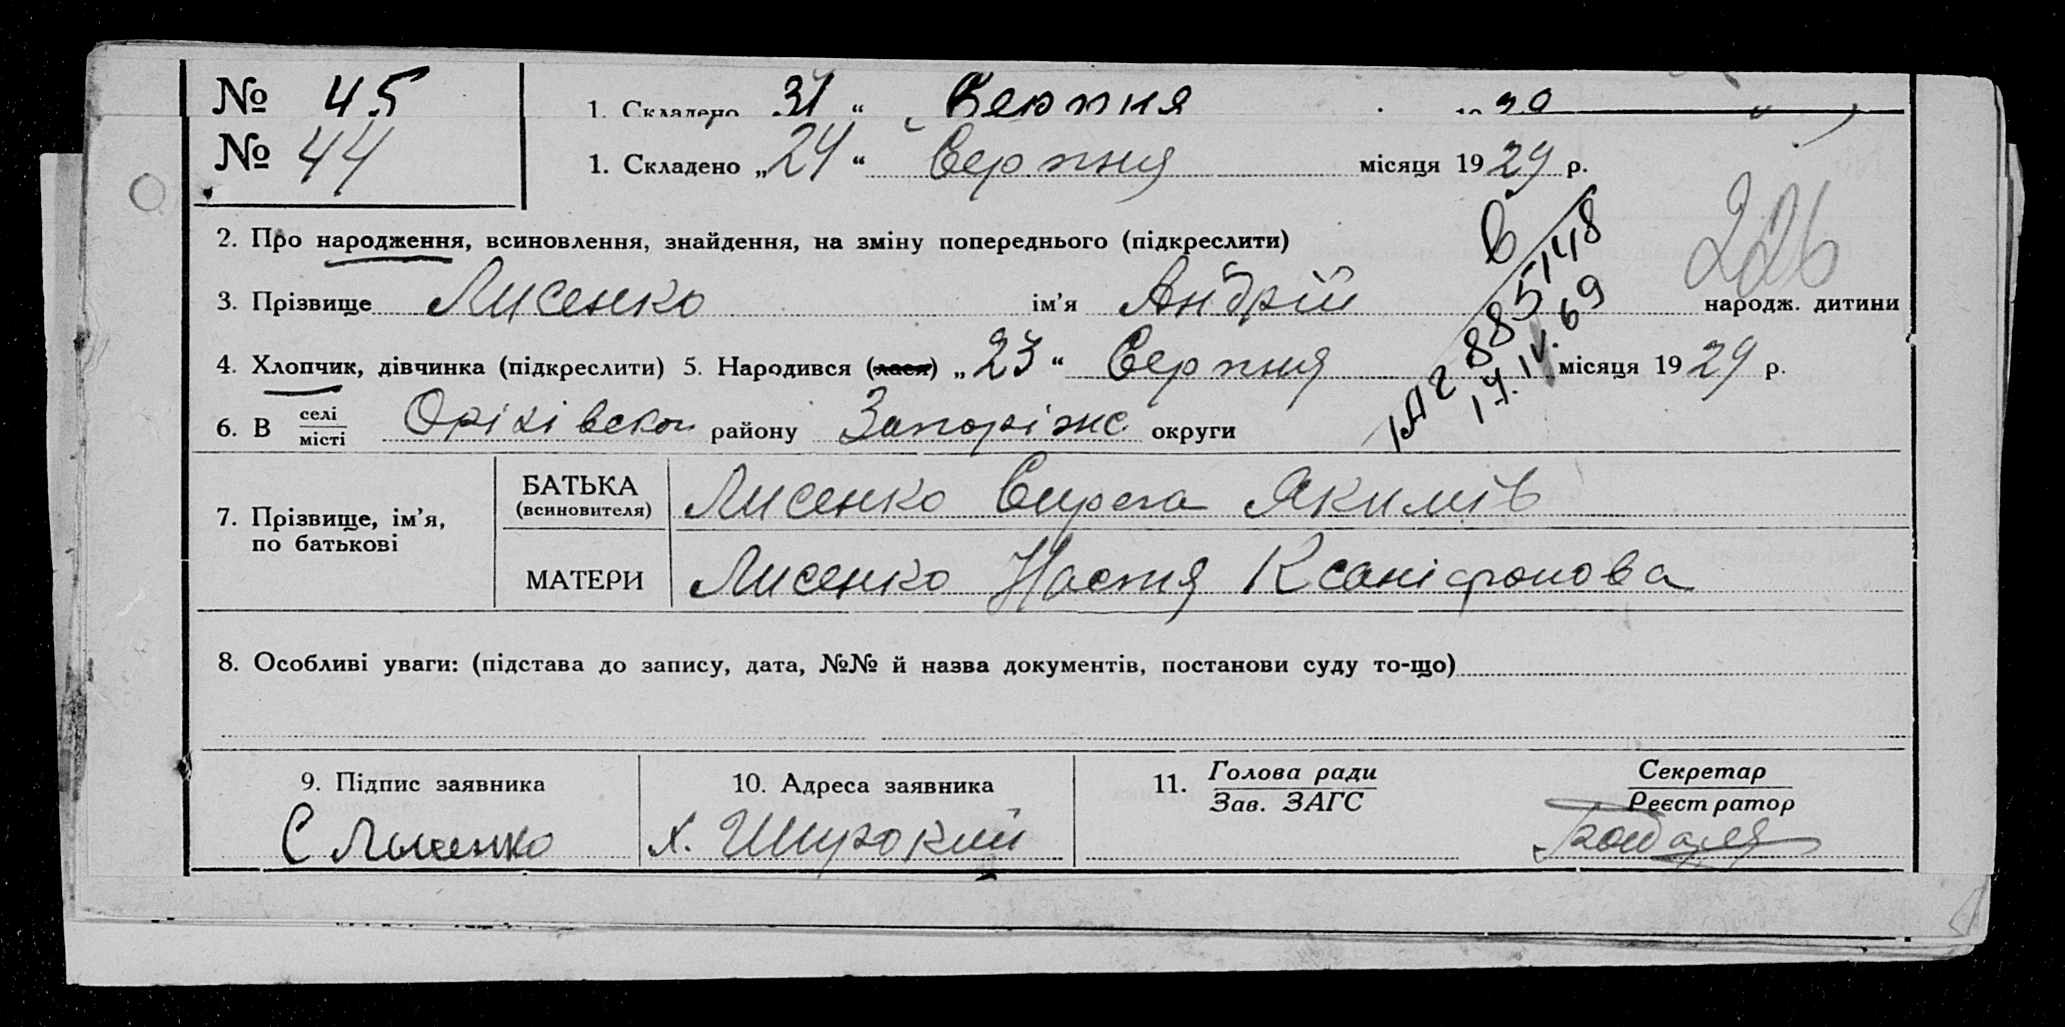 № 45 1. Складено 31 “ Серпня
№ 44 1. Складено „24“ Серпня місяця 1929 р.
2. Про народження, всиновлення, знайдення, на зміну попереднього (підкреслити)
226
3. Прізвище Лисенко ім'я Андрій народж. дитини
4. Хлопчик, дівчинка (підкреслити) 5. Народився (лася) „23“ Серпня місяця 1929 р.
6. В селі місті Оріхівськ району Запоріжс округи
В
885148
17.IV.69
7. Прізвище, ім'я, по батькові
БАТЬКА (всиновителя) Лисенко Сирега Якимів
МАТЕРИ Лисенко Настя Ксаніфонова
8. Особливі уваги: (підстава до запису, дата, №№ й назва документів, постанови суду то-що)
9. Підпис заявника 10. Адреса заявника 11. Голова ради Зав. ЗАГС Секретар Реєстратор
С Лисенко х. Широкий